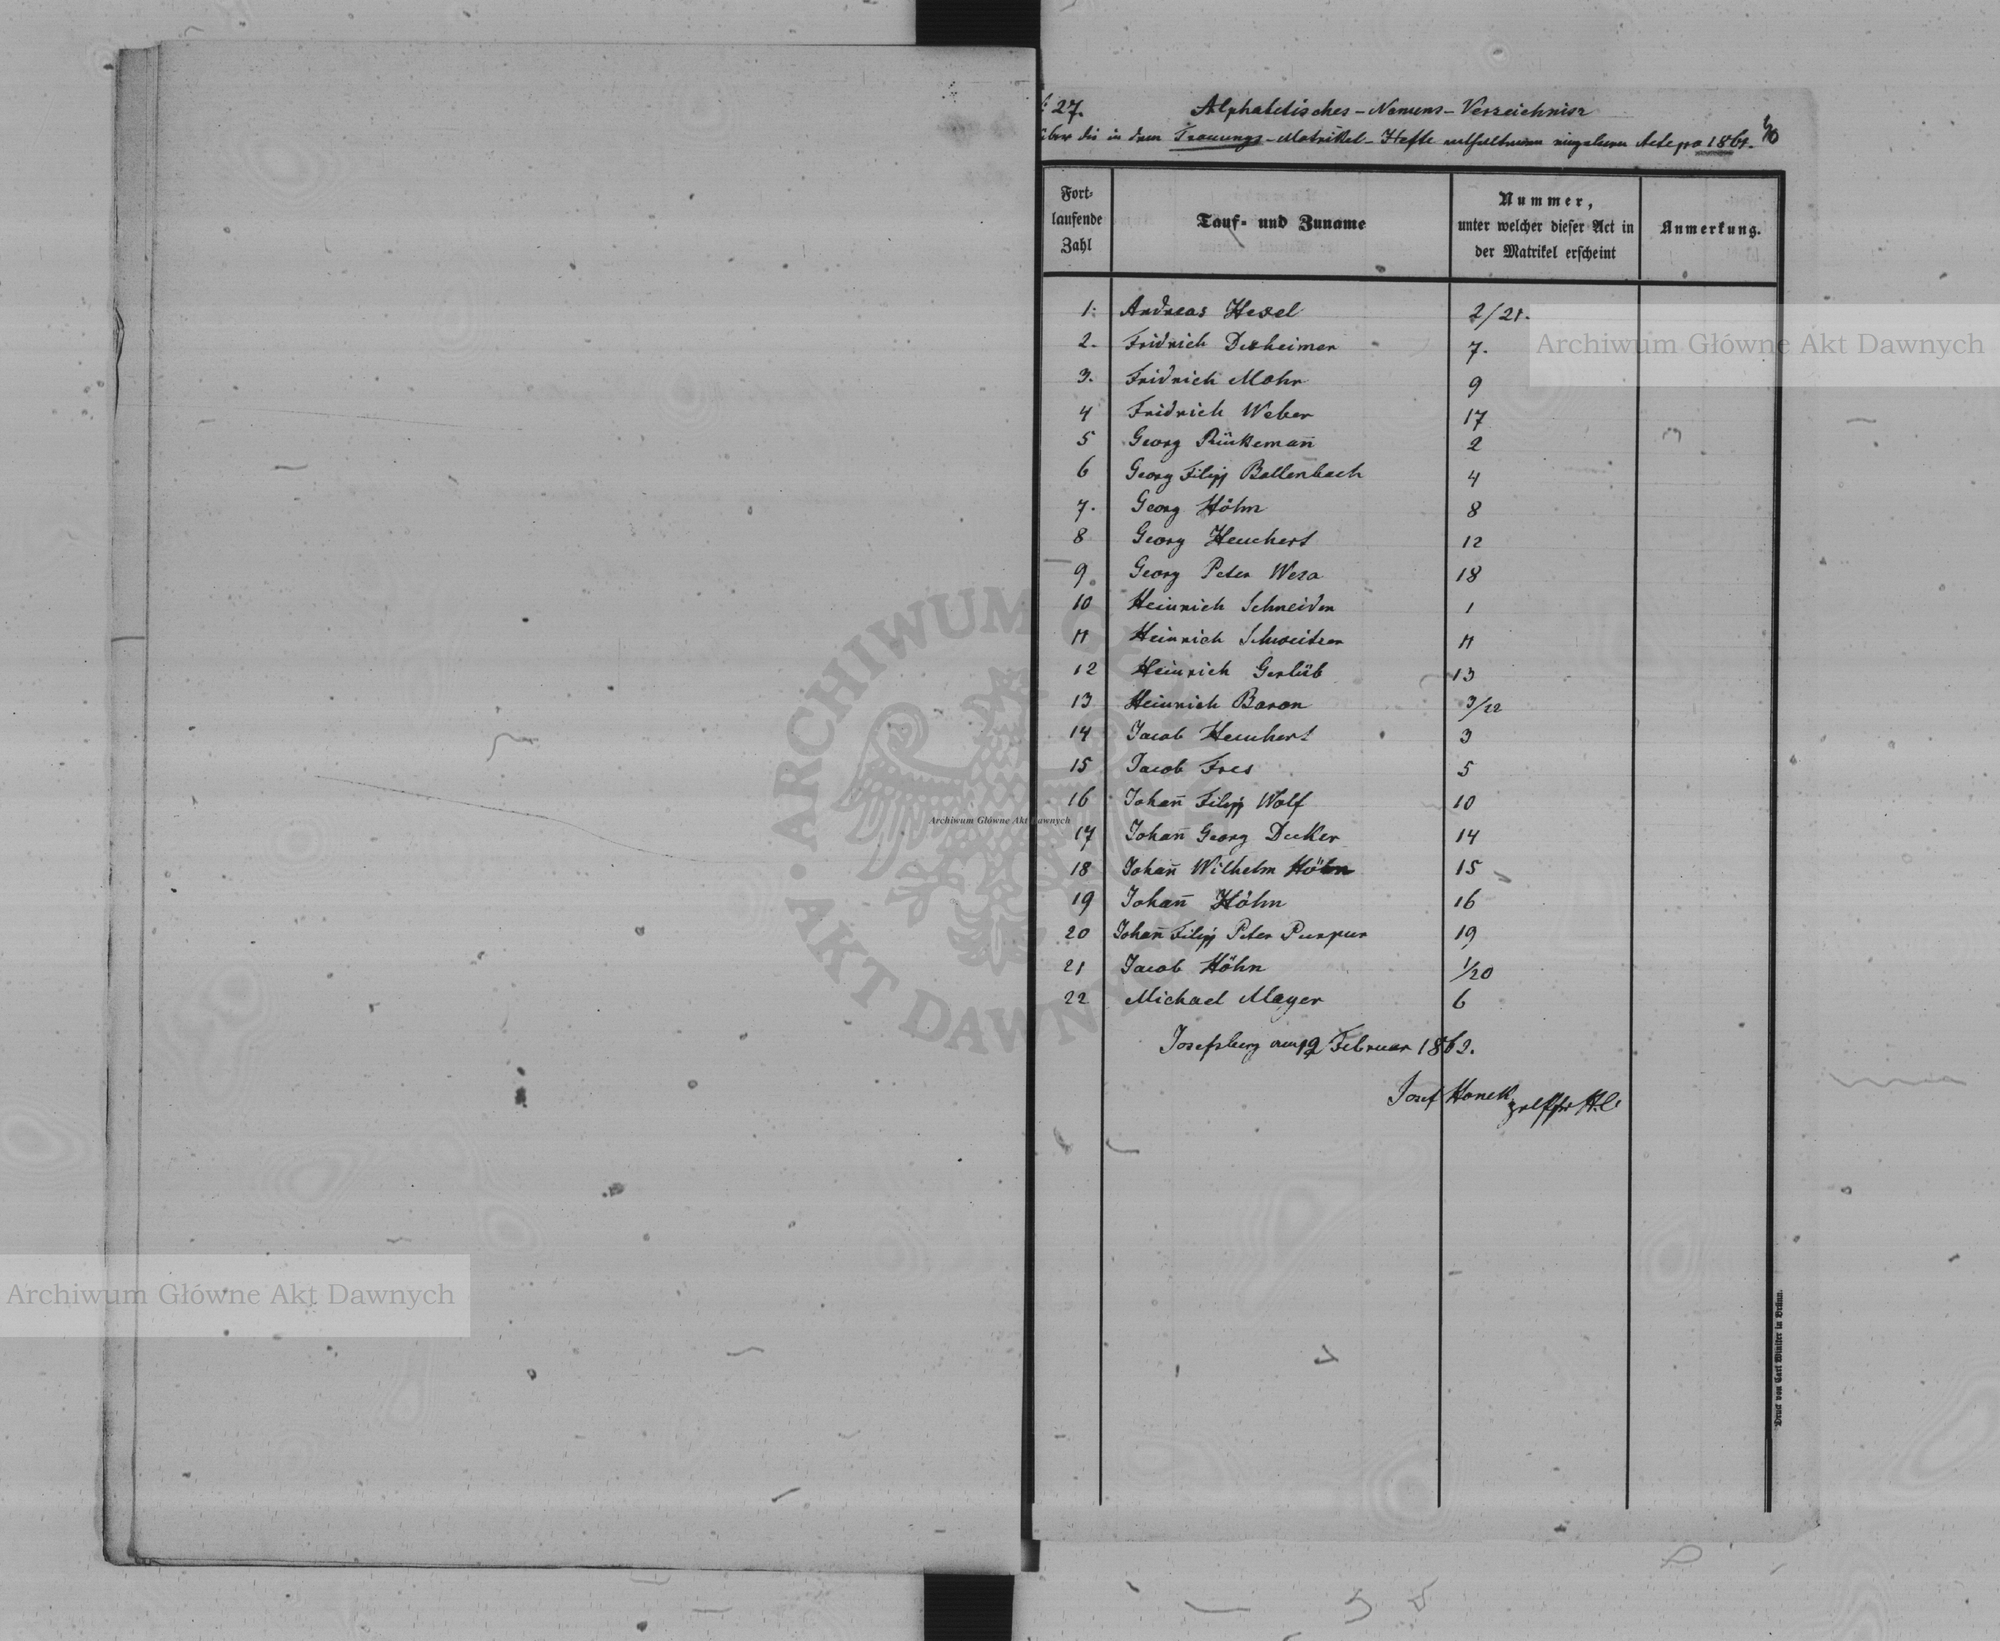 27. Alphabetisches-Namens-Verzeichniss
über die in dem Trauungs-Matrikel-Hefte enthaltenen einzelnen Acte pro 1861.
Fort-
laufende
Zahl
Tauf- und Zuname
Nummer,
unter welcher dieser Act in
der Matrikel erscheint
Anmerkung.
1. Andreas Hexel 2/21.
2. Fridrich Dexheimer 7.
3. Fridrich Mohr 9
4 Fridrich Weber 17
5 Georg Rükeman̄ 2
6 Georg Filipp Bollenbach 4
7. Georg Höhn 8
8 Georg Heuchert 12
9 Georg Peter Weza 18
10 Heinrich Schneider 1
11 Heinrich Schweitzer 11
12 Heinrich Gerlüb 13
13 Heinrich Baron 3/22
14 Jacob Heuchert 3
15 Jacob Fres 5
16 Johan̄ Filipp Wolf 10
17 Johan̄ Georg Decker 14
18 Johan̄ Wilhelm Höhn 15
19 Johan̄ Höhn 16
20 Johan̄ Filipp Peter Purpur 19
21 Jacob Höhn 1/20
22 Michael Mayer 6
Josefsberg am 12 Februar 1862.
Josef Hanek
Druck von Carl Winiker in Brünn.
Archiwum Główne Akt Dawnych
ARCHIWUM GŁÓWNE AKT DAWNYCH
Archiwum Główne Akt Dawnych
Archiwum Główne Akt Dawnych